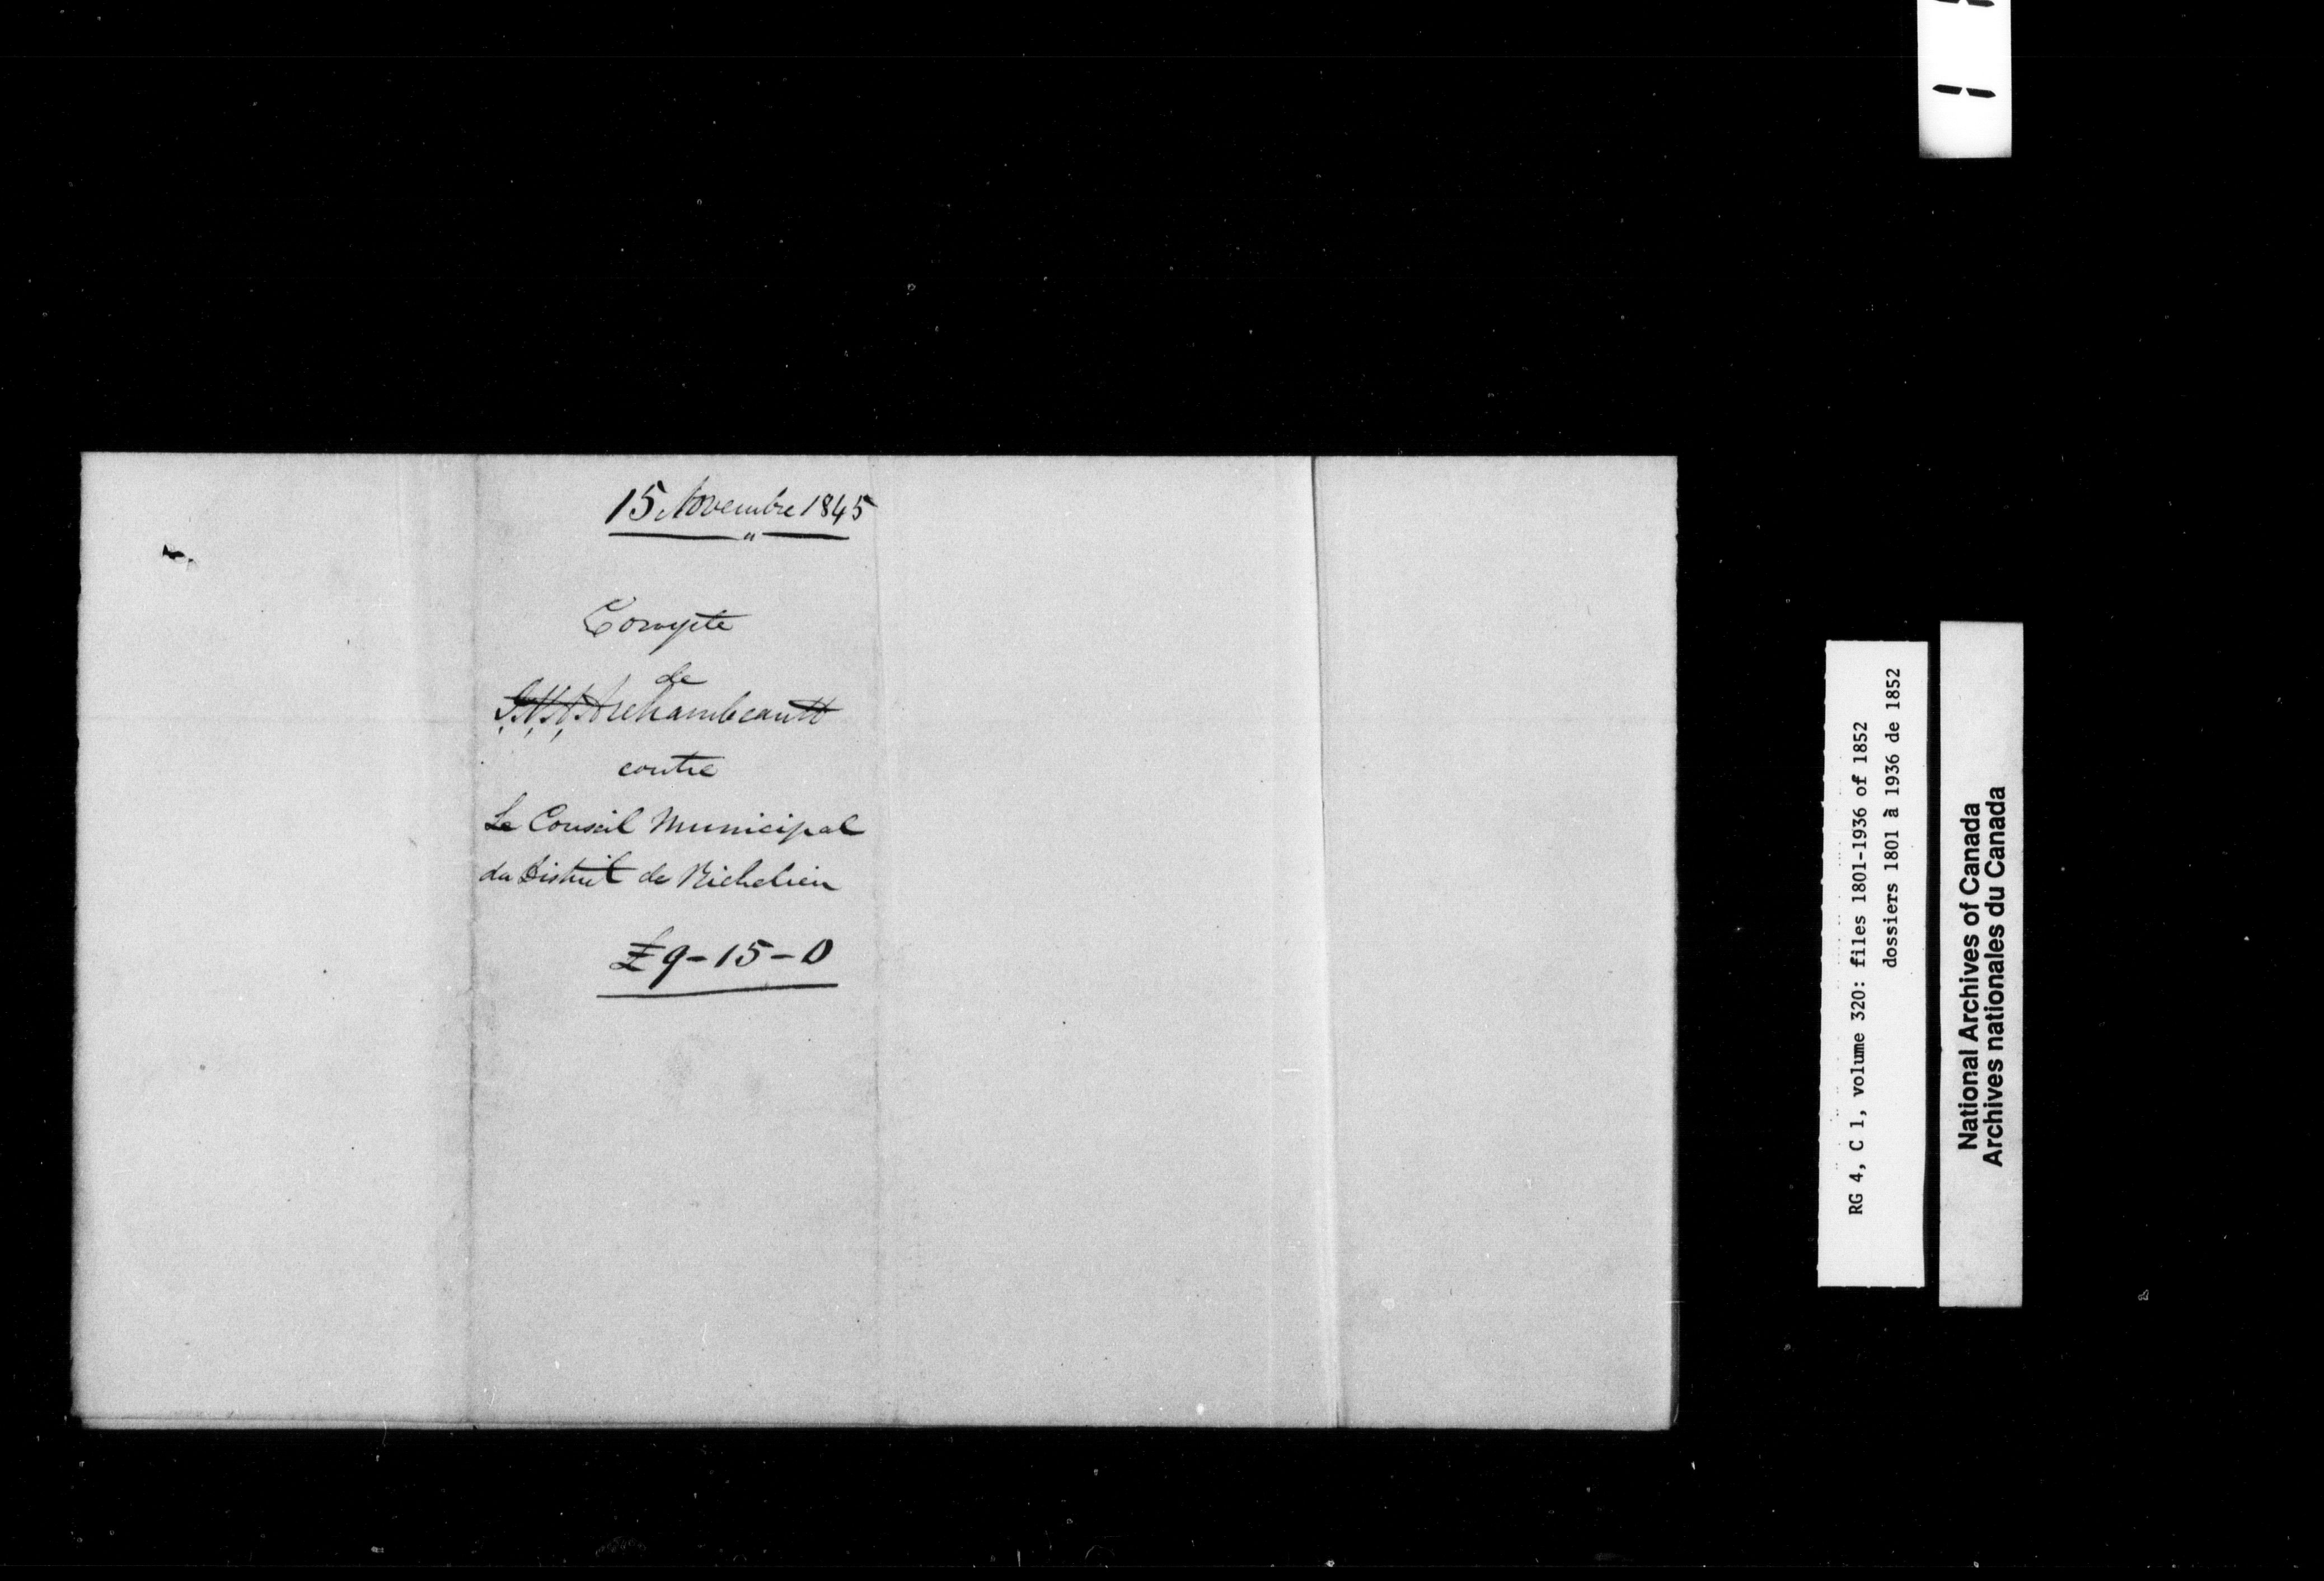 15 Novembre 1845
Compte
de
Archambeault
contre
Le Conseil Municipal
du District de Richelieu
£9-15-0
RG 4, C 1, volume 320: files 1801-1936 of 1852
dossiers 1801 à 1936 de 1852
National Archives of Canada
Archives nationales du Canada